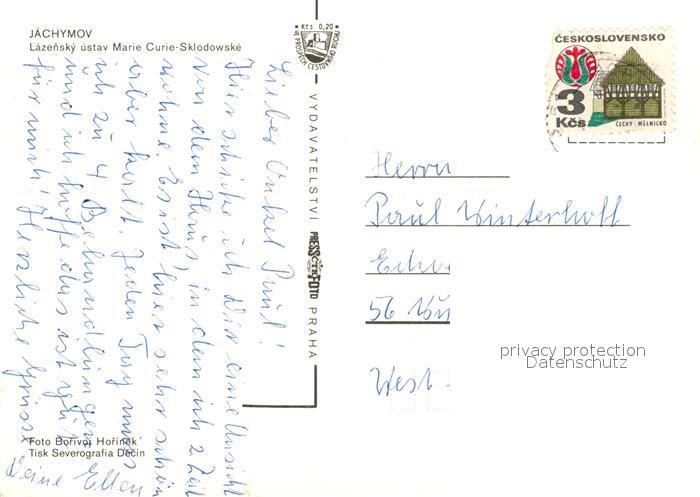 JÁCHYMOV
Lázeňský ústav Marie Curie-Sklodowské
Kčs 0,20
VE PROSPĚCH CESTOVNÍHO RUCHU
ČESKOSLOVENSKO
3
Kčs
ČECHY - MĚLNICKO
Lieber Onkel Paul!
Hier schicke ich Dir eine Ansicht
von dem Haus, in dem ich z. Zeit
wohne. Es ist hier sehr schön
aber kalt. Jeden Tag muss
ich zu 4 Behandlungen
und ich hoffe das ist gut
für mich! Herzliche Grüsse
Deine Ellen
VYDAVATELSTVÍ PRESSFOTO PRAHA
ČTK
Herrn
Paul Winterhoff
56
West-
privacy protection
Datenschutz
Foto Bořivoj Hořínek
Tisk Severografia Děčín